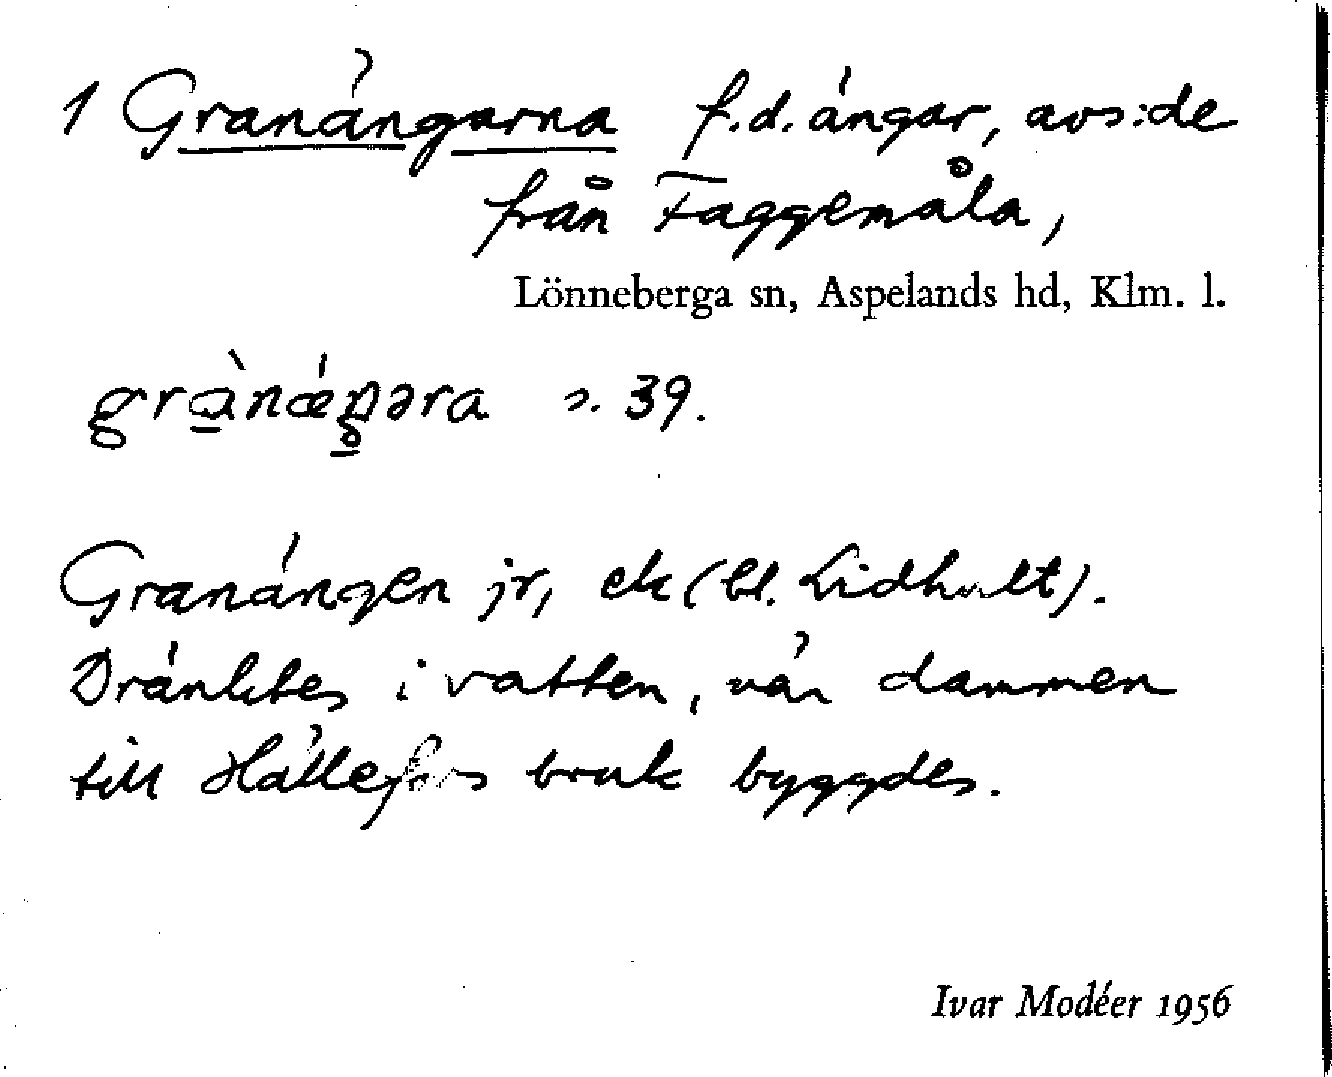 1 Granängarna f.d. ängar, avs:de
från Faggemåla,
Lönneberga sn, Aspelands hd, Klm. l.
grànǽŋəra s. 39.
Granängen jr, ek (bl. Lidhult).
Dränktes i vatten, när dammen
till Hällefors bruk byggdes.
Ivar Modéer 1956